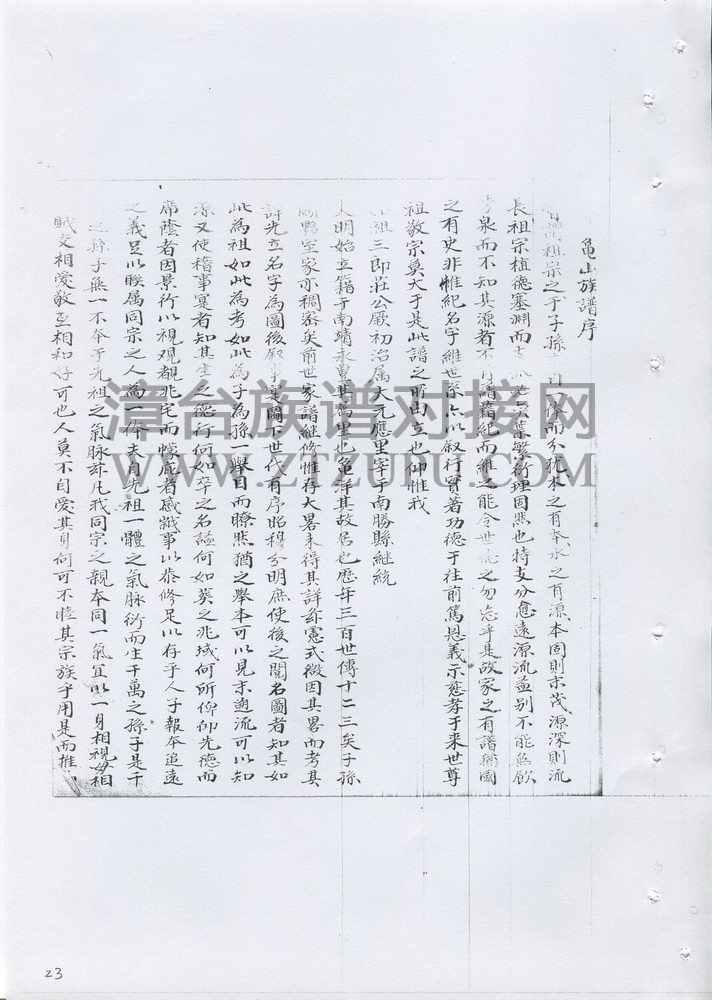 龜山族譜序
祖宗之于子孫一而分犹木之有本水之有源本固則末茂源深則流
長祖宗植德塞淵而葉繁衍理固然也特支分愈遠源流益别不能無飲
泉而不知其源者不有譜籍紀而維之能令世之勿忘乎是故家之有譜猶國
之有史非惟紀名字維世系亦以叙行實著功德于往前篤恩義示慈孝于来世尊
祖敬宗莫大于是此譜之所由立也仰惟我
祖三郎莊公厥初治属大元應里宰于南勝縣継統
大明始立籍于南靖永豊其為里也龜洋其故居也歷年三百世傳十二三矣子孫
室家亦稠密矣前世家譜継修惟存大畧未得其詳憲式微因其畧而考其
詳先立名字為圖後叙事圖下世代有序昭穆分明庶使後之閱名圖者知其如
此為祖如此為考如此為子為孫一舉目而瞭然猶之舉本可以見末遡流可以知
源又使稽事寔者知其生之德行何如卒之名謚何如葵之兆域何所仰仰先德而
席蔭者因景行以視观覩兆宅而幪庇者感戩事以恭修足以存乎人子報本追遠
之義足以睽属同宗之人為一体夫自先祖一體之氣脉衍而生千萬之孫子是千
之孫子無一不本于先祖之氣脉我同宗之親本同一氣宜以一身相視毋相
戕交相愛敬至相和好可也人莫不自愛其身何可不睦其宗族乎用是而推
漳台族谱对接网
WWW.ZTZUPU.COM
23